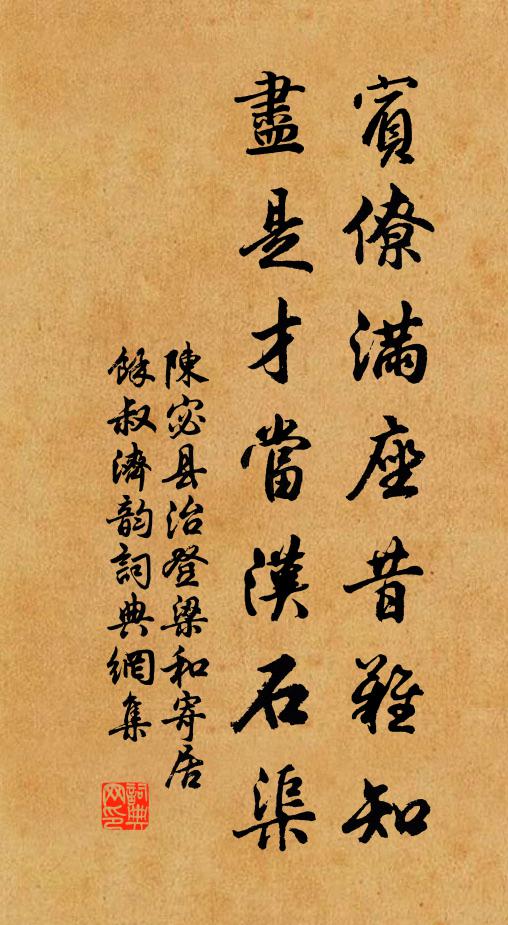 賓僚滿座昔難知
盡是才當漢石渠
陳宓县治登梁和寄居
餘叔濟韵詞典網集
詞典
网印